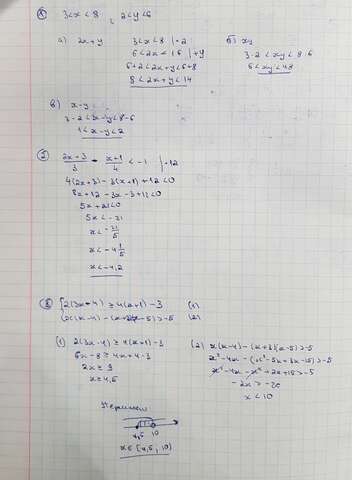 3<x<8 ; 2<y<6
а) 2x+y
3<x<8 |·2
6<2x<16 |+y
6+2<2x+y<6+8
8<2x+y<14
б) xy
3·2<xy<8·6
6<xy<48
в) x-y
3-2<x-y<8-6
1<x-y<2
2x+3/3 - x+1/4 < -1 |·12
4(2x+3)-3(x+1)+12<0
8x+12-3x-3+12<0
5x+21<0
5x<-21
x<-21/5
x<-4 1/5
x<-4,2
2(3x-4) ≥ 4(x+1)-3 (1)
x(x-4)-(x+3)(x-5)>-5 (2)
(1) 2(3x-4) ≥ 4(x+1)-3
6x-8 ≥ 4x+4-3
2x ≥ 9
x ≥ 4,5
(2) x(x-4)-(x+3)(x-5)>-5
x²-4x-(x²-5x+3x-15)>-5
x²-4x-x²+2x+15>-5
-2x>-20
x<10
4,5 10
x∈[4,5; 10)